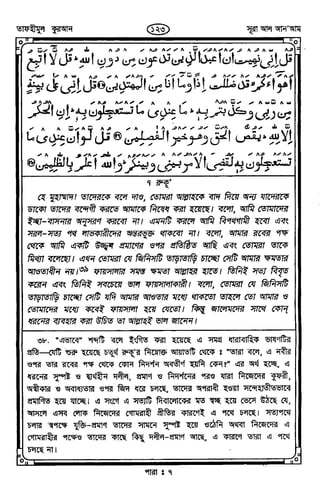 তাফহীমুল কুরআন
১২৩
সূরা আল আন'আম
قُلْ إِنِّي نُهِيتُ أَنْ أَعْبُدَ الَّذِينَ تَدْعُونَ مِنْ دُونِ اللَّهِ ۚ قُلْ لَا أَتَّبِعُ
أَهْوَاءَكُمْ ۙ قَدْ ضَلَلْتُ إِذًا وَمَا أَنَا مِنَ الْمُهْتَدِينَ ۝ قُلْ إِنِّي عَلَىٰ بَيِّنَةٍ
مِنْ رَبِّي وَكَذَّبْتُمْ بِهِ ۚ مَا عِنْدِي مَا تَسْتَعْجِلُونَ بِهِ ۚ إِنِ الْحُكْمُ
إِلَّا لِلَّهِ ۖ يَقُصُّ الْحَقَّ وَهُوَ خَيْرُ الْفَاصِلِينَ ۝ قُلْ لَوْ أَنَّ عِنْدِي مَا
تَسْتَعْجِلُونَ بِهِ لَقُضِيَ الْأَمْرُ بَيْنِي وَبَيْنَكُمْ ۗ وَاللَّهُ أَعْلَمُ بِالظَّالِمِينَ ۝
৭ রুকু'
হে মুহাম্মাদ! তাদেরকে বলে দাও, তোমরা আল্লাহকে বাদ দিয়ে অন্য যাদেরকে
ডাকো তাদের বন্দেগী করতে আমাকে নিষেধ করা হয়েছে। বলো, আমি তোমাদের
ইচ্ছা-বাসনার অনুসরণ করবো না। এমনটি করলে আমি বিপথগামী হবো এবং
সরল-সত্য পথ লাভকারীদের অন্তরভুক্ত থাকবো না। বলো, আমার রবের পক্ষ
থেকে আমি একটি উজ্জ্বল প্রমাণের ওপর প্রতিষ্ঠিত আছি এবং তোমরা তাকে
মিথ্যা বলেছো। এখন তোমরা যে জিনিসটি তাড়াতাড়ি চাচ্ছো সেটি আমার ক্ষমতার
আওতাধীন নয়।৩৯ ফায়সালার সমস্ত ক্ষমতা আল্লাহর হাতে। তিনিই সত্য বিবৃত
করেন এবং তিনিই সবচেয়ে ভাল ফায়সালাকারী। বলো, তোমরা যে জিনিসটি
তাড়াতাড়ি চাচ্ছো সেটি যদি আমার আওতার মধ্যে থাকতো তাহলে তো আমার ও
তোমাদের মধ্যে কবেই ফায়সালা হয়ে যেতো। কিন্তু জালেমদের সাথে কোন্
ধরনের ব্যবহার করা উচিত তা আল্লাহই ভাল জানেন।
৩৮. "এভাবে" শব্দটি বলে ইংগিত করা হয়েছে এ সমগ্র ধারাবাহিক ভাষণটির
প্রতি—যেটি শুরু হয়েছে চতুর্থ রুকূ'র নিম্নোক্ত আয়াতটি থেকে : "তারা বলে, এ নবীর
ওপর তার রবের পক্ষ থেকে কোন নিদর্শন অবতীর্ণ হয়নি কেন?" এর অর্থ হচ্ছে, এ
ধরনের সুস্পষ্ট ও দ্ব্যর্থহীন দলীল, প্রমাণ ও নিদর্শনের পরও যারা নিজেদের কুফরী,
অস্বীকার ও অবাধ্যতার ওপর জিদ ধরে চলছে, তাদের অপরাধী হওয়া সন্দেহাতীতভাবে
প্রমাণিত হয়ে যাচ্ছে। এ সংগে এ সত্যটি দিবালোকের মত স্বচ্ছ হয়ে ভেসে উঠছে যে,
আসলে এসব লোক নিজেদের গোমরাহী প্রীতির কারণেই এ পথে চলছে। সত্যপথে
চলার স্বপক্ষে যুক্তি-প্রমাণ তাদের সামনে সুস্পষ্ট হয়ে ওঠেনি অথবা নিজেদের এ
গোমরাহীর পক্ষেও তাদের কাছে কিছু দলীল-প্রমাণ আছে, এ কারণে তারা এ পথে
চলছে না।
পারা : ৭